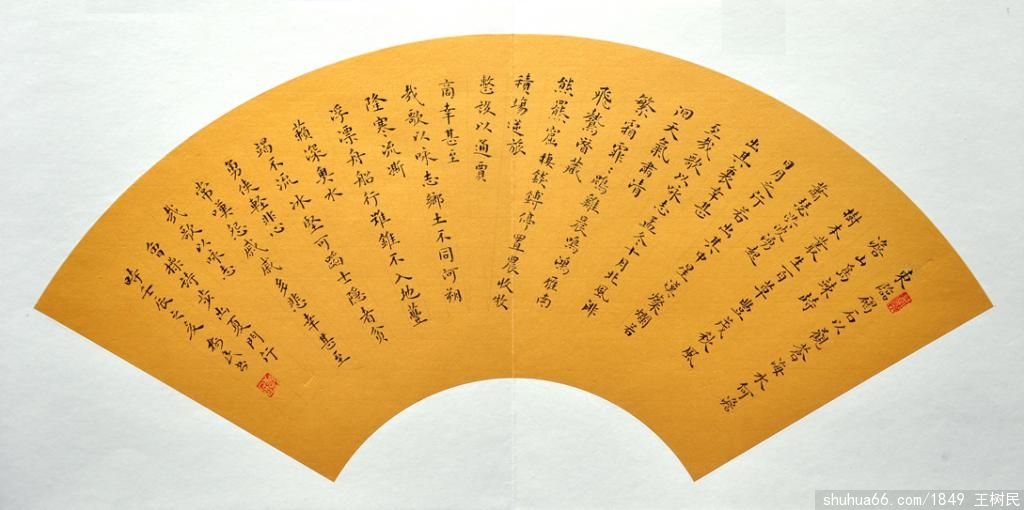 東臨碣石以觀蒼海水何澹
澹山島竦峙
樹木叢生百草豐茂秋風
蕭瑟洪波湧起
日月之行若出其中星漢燦爛若
出其裏幸甚
至哉歌以詠志孟冬十月北風徘
洄天氣肅清
繁霜霏：鵾雞晨鳴鴻雁南
飛鷙潛藏
熊羆窟棲錢鎛停置農收
積場逆旅
整設以通賈
商幸甚至
哉歌以詠志鄉土不同河朔
隆寒流澌
浮漂舟船行難錐不入地蘴
蘋深奧水
竭不流冰堅可蹈士隱者貧
勇俠輕悲
常嘆怨戚戚多悲幸甚至
哉歌以詠志
曹操詩步出夏門行
時壬辰之夏樹民書
shuhua66.com/1849 王树民